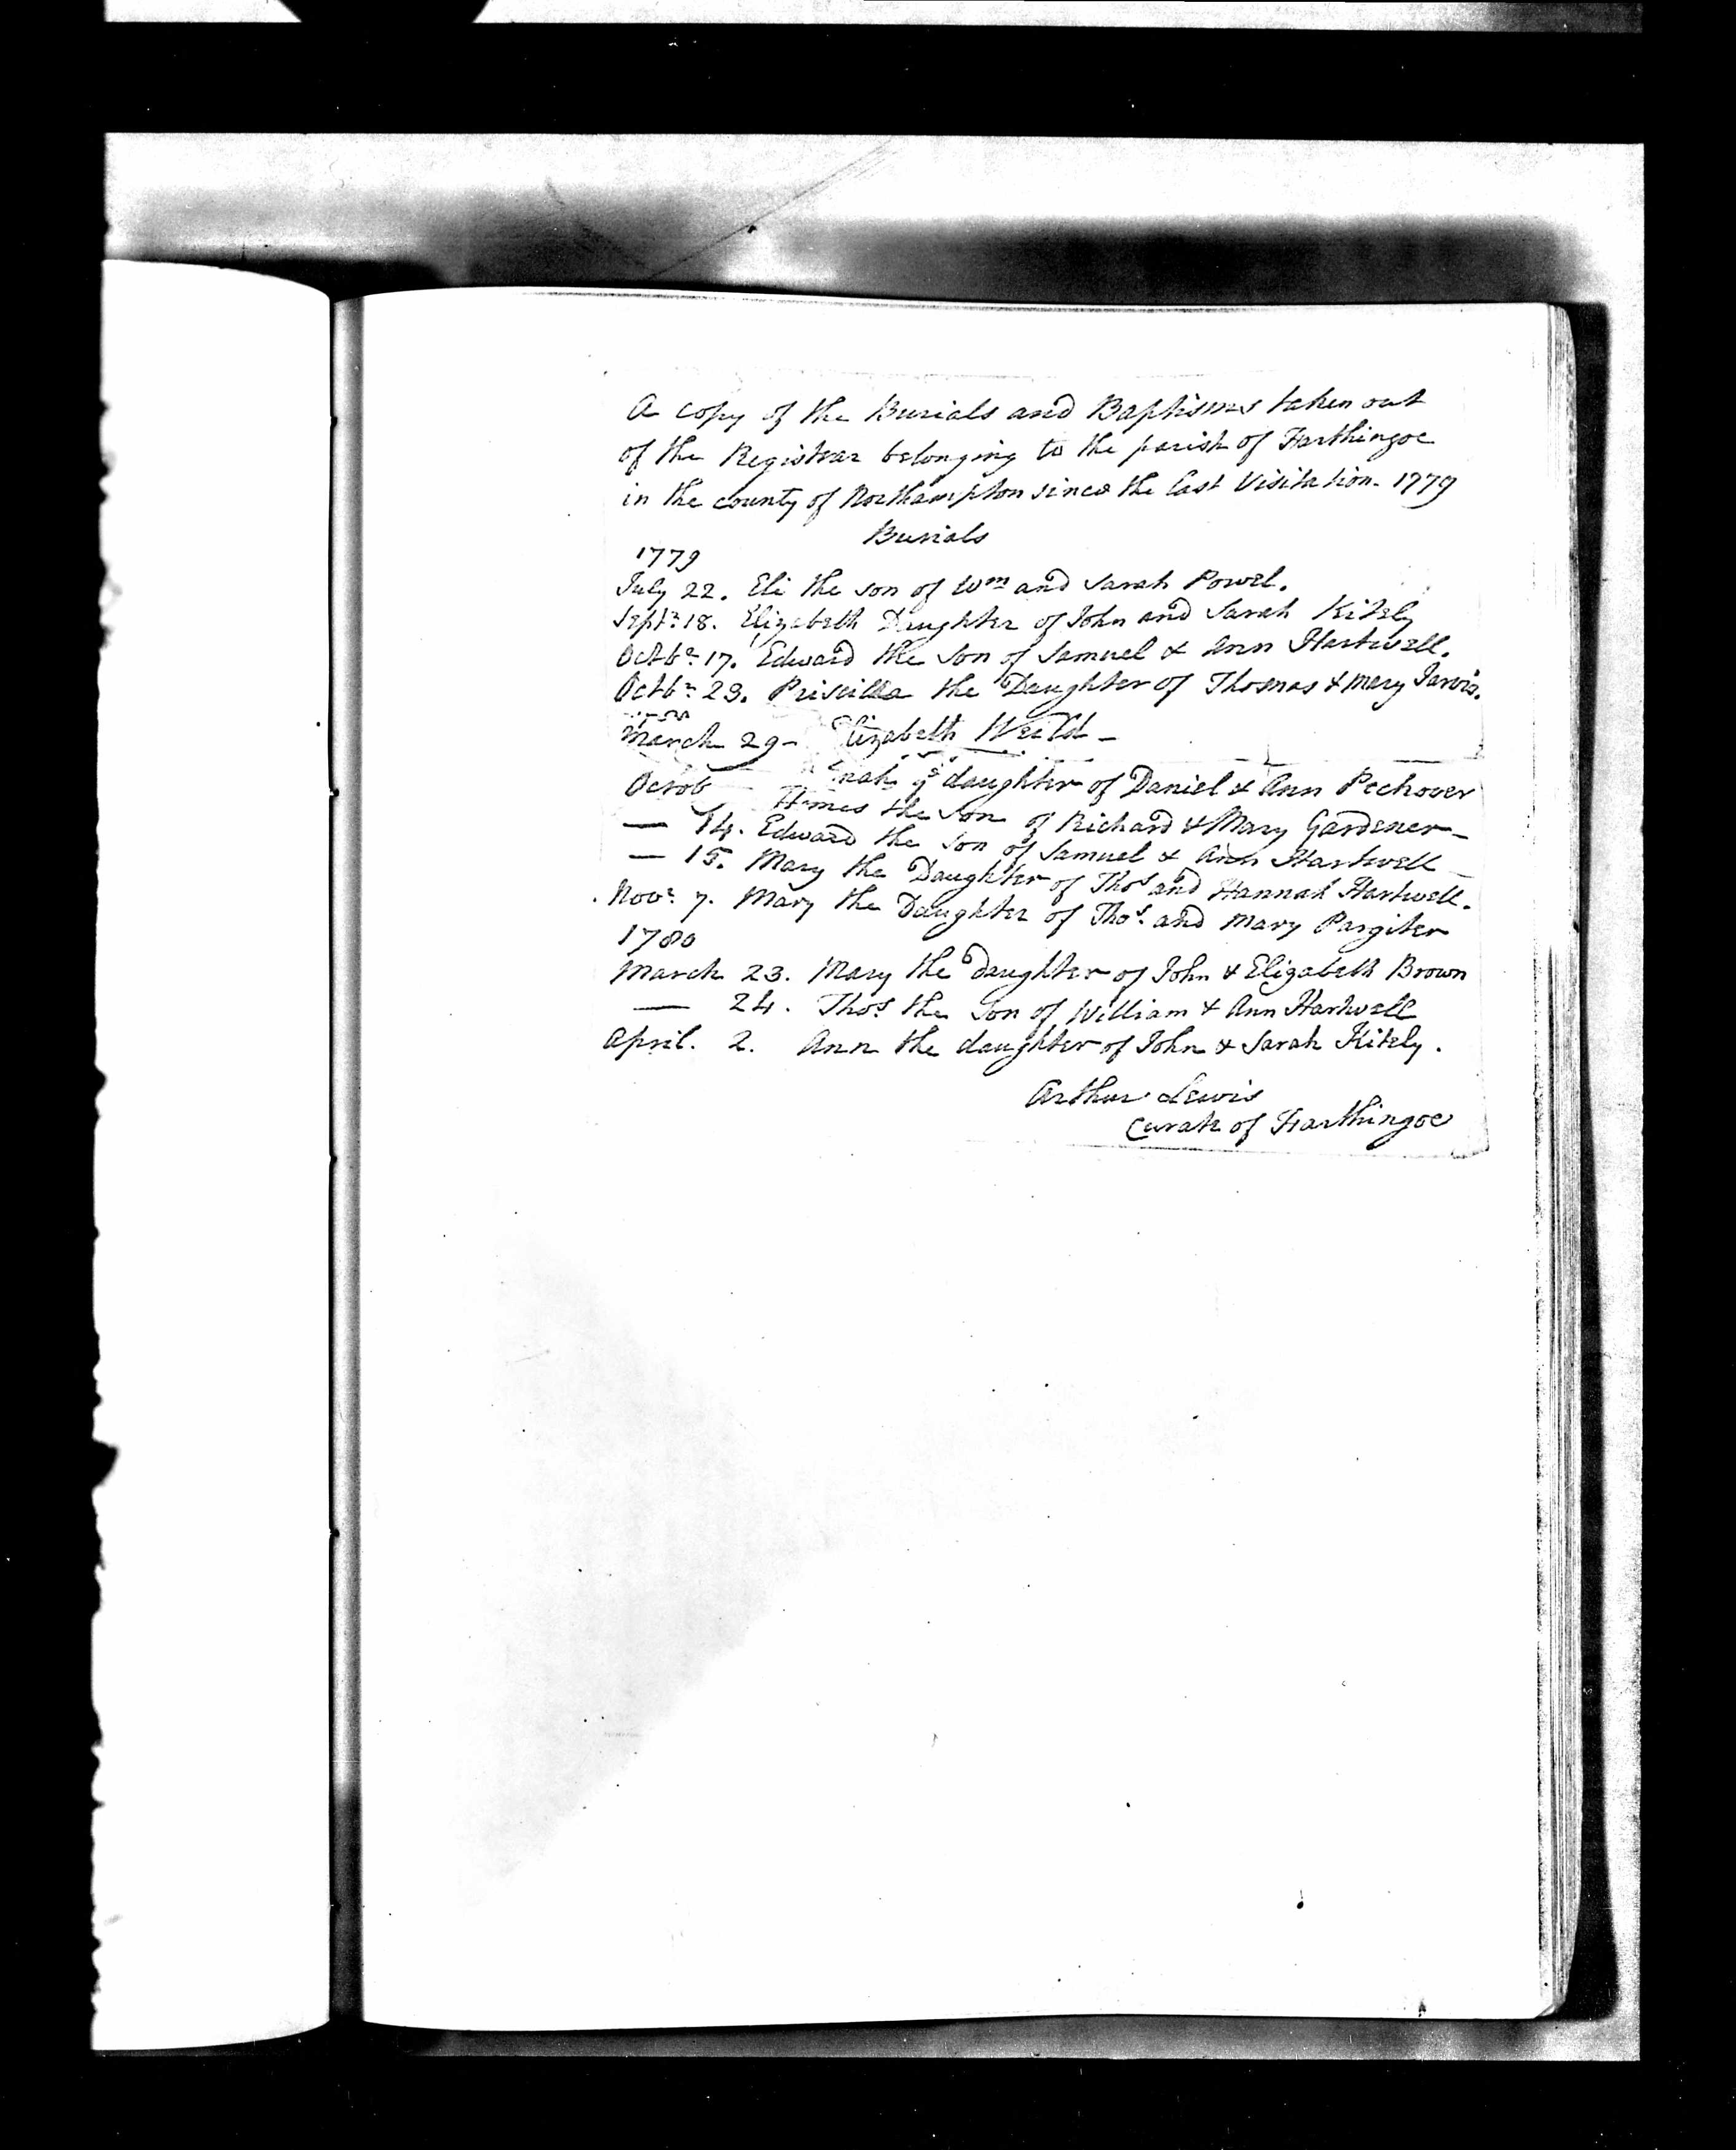 A copy of the Burials and Baptisms taken out
of the Registrar belonging to the parish of Farthingoe
in the county of Northampton since the last Visitation. 1779
Burials
1779
July 22. Eli the son of Wm and Sarah Powel.
Septr. 18. Elizabeth Daughter of John and Sarah Kitely
Octbr. 17. Edward the Son of Samuel & Ann Hartwell.
Octbr. 23. Priscilla the Daughter of Thomas & Mary Jarvis.
March 29 - Elizabeth
Octob ye daughter of Daniel & Ann Pechover
the Son of Richard & Mary Gardener -
— 14. Edward the Son of Samuel & Ann Hartwell
— 15. Mary the Daughter of Thos and Hannah Hartwell.
Novr. 7. Mary the Daughter of Thos. and Mary Pargiter
1780
March 23. Mary the Daughter of John & Elizabeth Brown
— 24. Thos. the Son of William & Ann Hartwell
April. 2. Ann the daughter of John & Sarah Kitely.
Arthur Lewis
Curate of Farthingoe